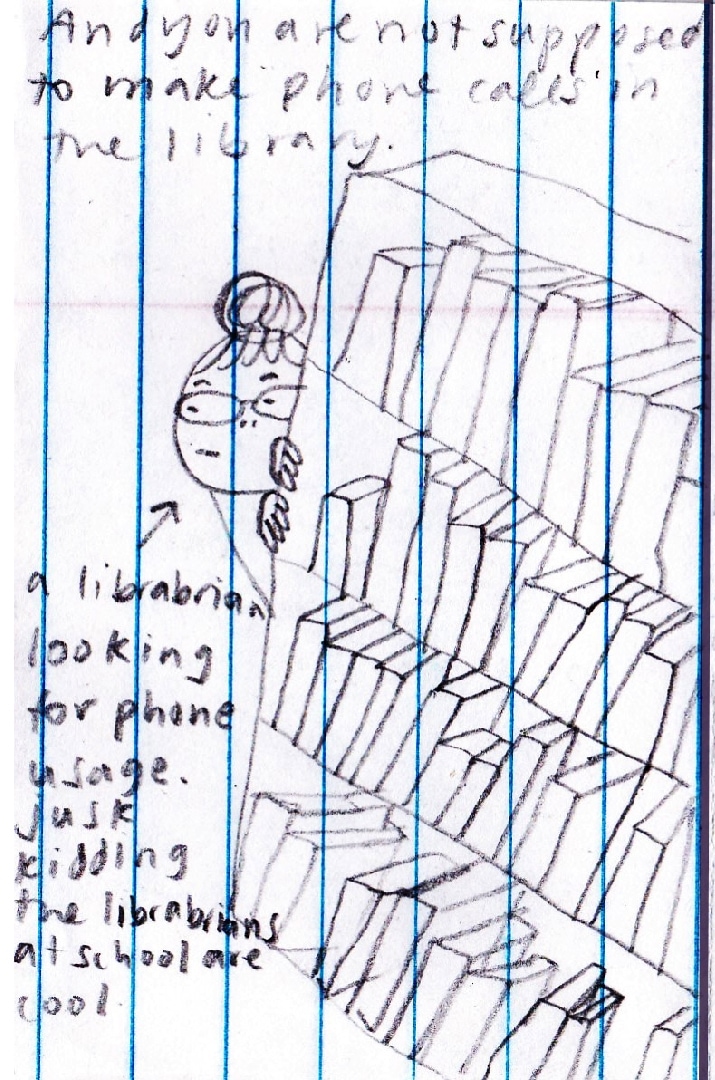 And you are not supposed
to make phone calls in
the library.
a librabrian
looking
for phone
usage.
Jusk
kidding
the librabrians
at school are
cool